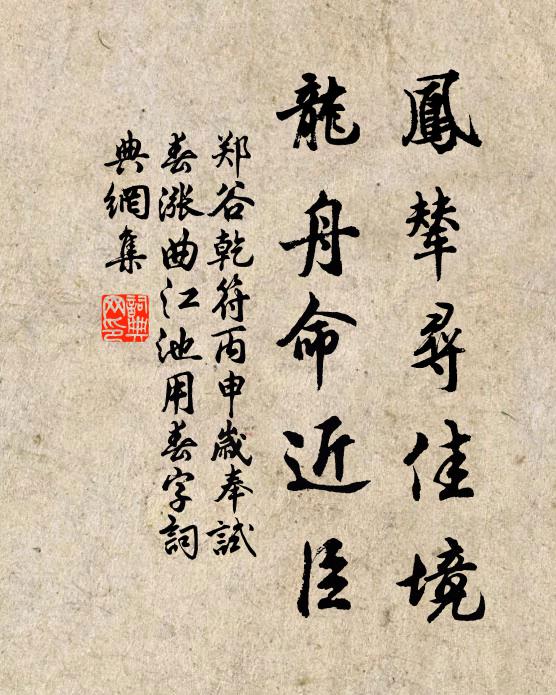 鳳輦尋佳境
龍舟命近臣
郑谷乾符丙申歲奉試
春漲曲江池用春字詞
典網集
詞典
网印